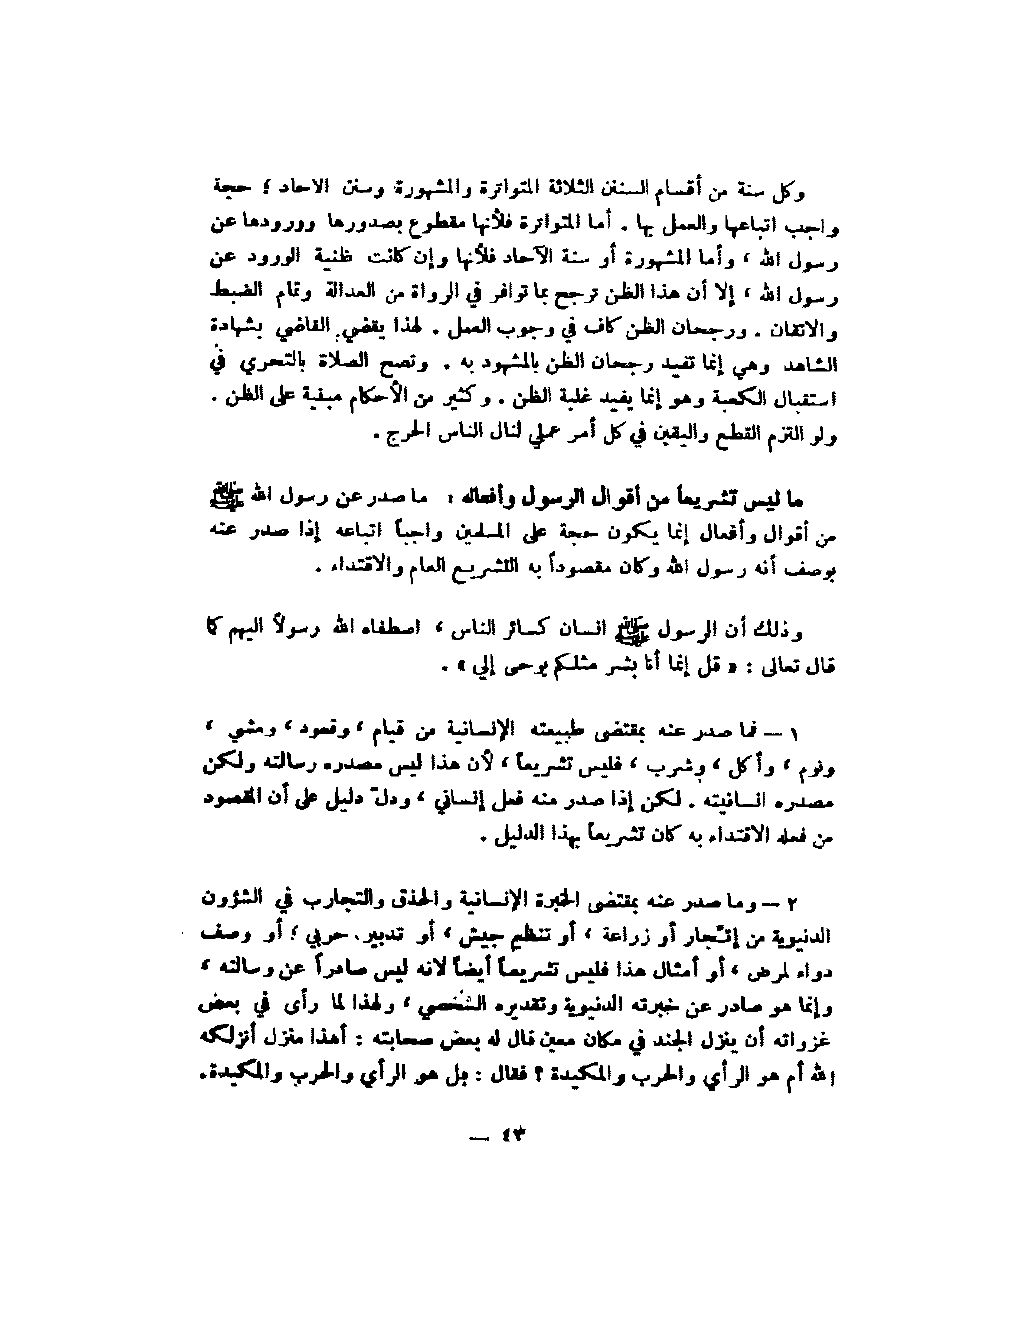 وكل سنة من أقسام السنن الثلاثة المتواترة والمشهورة وسنن الاحاد ؛ حجة
واجب اتباعها والعمل بها . أما المتواترة فلأنها مقطوع بصدورها وورودها عن
رسول الله ، وأما المشهورة أو سنة الآحاد فلأنها وإن كانت ظنية الورود عن
رسول الله ، إلا أن هذا الظن ترجح بما توافر في الرواة من العدالة وتمام الضبط
والاتقان . ورجحان الظن كاف في وجوب العمل . لهذا يقضي القاضي بشهادة
الشاهد وهي إنما تفيد رجحان الظن بالمشهود به . وتصح الصلاة بالتحري في
استقبال الكعبة وهو إنما يفيد غلبة الظن . وكثير من الأحكام مبنية على الظن .
ولو التزم القطع واليقين في كل أمر عملي لنال الناس الحرج .
ما ليس تشريعاً من أقوال الرسول وأفعاله : ما صدر عن رسول الله ﷺ
من أقوال وأفعال إنما يكون حجة على المسلمين واجباً اتباعه إذا صدر عنه
بوصف أنه رسول الله وكان مقصوداً به التشريع العام والاقتداء .
وذلك أن الرسول ﷺ انسان كسائر الناس ، اصطفاه الله رسولاً اليهم كما
قال تعالى : « قل إنما أنا بشر مثلكم يوحى إلي » .
١ – فما صدر عنه بمقتضى طبيعته الإنسانية من قيام ، وقعود ، ومشي ،
ونوم ، وأكل ، وشرب ، فليس تشريعاً ، لأن هذا ليس مصدره رسالته ولكن
مصدره انسانيته . لكن إذا صدر منه فعل إنساني ، ودلّ دليل على أن المقصود
من فعله الاقتداء به كان تشريعاً بهذا الدليل .
٢ – وما صدر عنه بمقتضى الخبرة الإنسانية والحذق والتجارب في الشؤون
الدنيوية من إتّجار أو زراعة ، أو تنظيم جيش ، أو تدبير حربي ؛ أو وصف
دواء لمرض ، أو أمثال هذا فليس تشريعاً أيضاً لانه ليس صادراً عن رسالته ،
وإنما هو صادر عن خبرته الدنيوية وتقديره الشخصي ، ولهذا لما رأى في بعض
غزواته أن ينزل الجند في مكان معين قال له بعض صحابته : أهذا منزل أنزلكه
الله أم هو الرأي والحرب والمكيدة ؟ فقال : بل هو الرأي والحرب والمكيدة.
٤٣ –